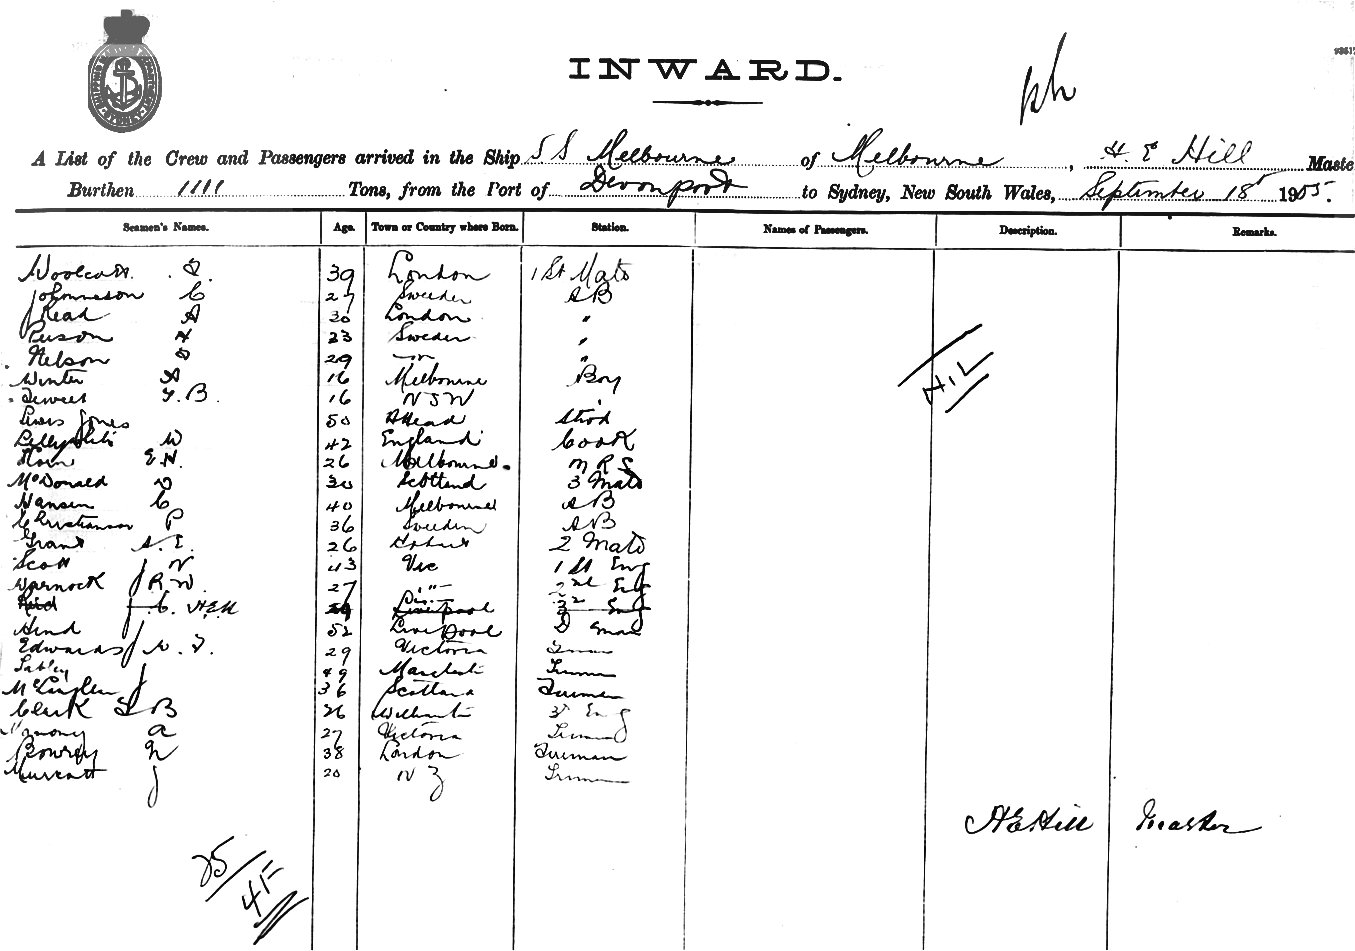 INWARD.
A List of the Crew and Passengers arrived in the Ship S S Melbourne of Melbourne, H. E Hill Maste
Burthen 1111 Tons, from the Port of Devonport to Sydney, New South Wales, September 18 1905.
Seamen's Names. Age. Town or Country where Born. Station. Names of Passengers. Description. Remarks.
39 London 1 St Mate
Johnneson C 27 Sweden A B
Read A 30 London "
Person H 23 Sweden "
Nelson 29 "
Winter A 16 Melbourne Boy
F. B. 16 N S W "
Lewis Jones 50 Stwd
W 42 England Cook
Horn E N. 26 Melbourne. M R S
McDonald D 30 Scotland 3 Mate
Hansen C 40 Melbourne A B
Christianson P 36 Sweden A B
Grant A. E. 26 Hobart 2 Mate
Scott N 43 Vic 1 St Eng
Warnock J R W. 27 " 2nd Eng
Reid C. H.E.H Liverpool 3rd Eng
Hind J 52 Liverpool D man
Edwards J W. 29 Victoria
49 Manchester Fireman
36 Scotland Fireman
Clark B 26 3rd Eng
a 27 Victoria
Bowrey 38 London Fireman
J 20 N Z
NIL
H E Hill Master
25